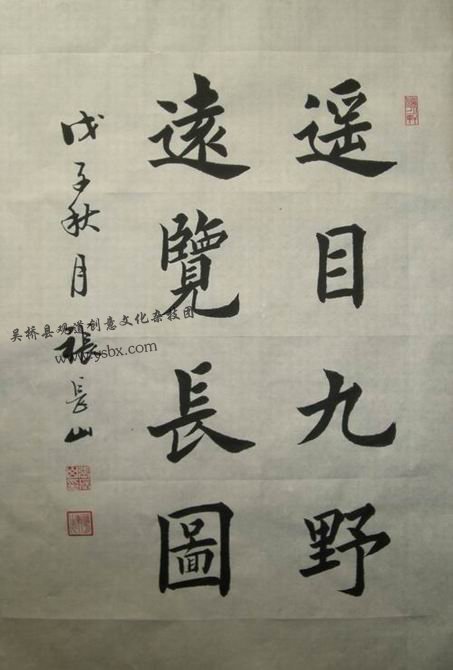 遥目九野
遠覽長圖
戊子秋月張長山
吴桥县观道创意文化杂技团
www.ysbx.com